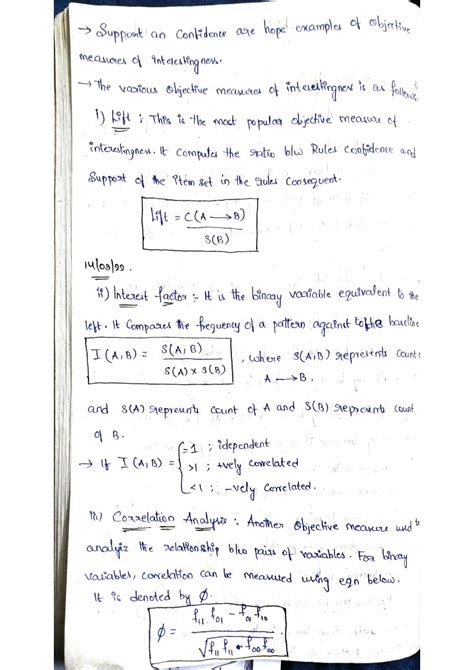 → Support an Confidence are hope examples of Objective
measures of Interestingness.
→ The various Objective measures of interestingness is as follows
i) Lift : This is the most popular objective measure of
interestingness. It Computes the ratio b/w Rules Confidence and
Support of the item set in the rules Consequent.
Lift = C(A → B)
S(B)
14/03/22.
ii) Interest factor :- It is the binary variable equivalent to the
left. It Compares the frequency of a pattern against to the baseline
I(A,B) = S(A,B)
S(A) x S(B)
, where S(A,B) represents count
A → B.
and S(A) represents count of A and S(B) represents count
of B.
→ If I(A,B) = { =1 ; idependent
>1 ; +vely correlated
<1 ; -vely Correlated.
iii) Correlation Analysis : Another Objective measure used to
analyiz the relationship b/w pairs of variables. For binary
variables, correlation can be measured using eqn below.
It is denoted by Ø.
Ø = f11 f01 - f01 f10
√f11 f11 f00 f00